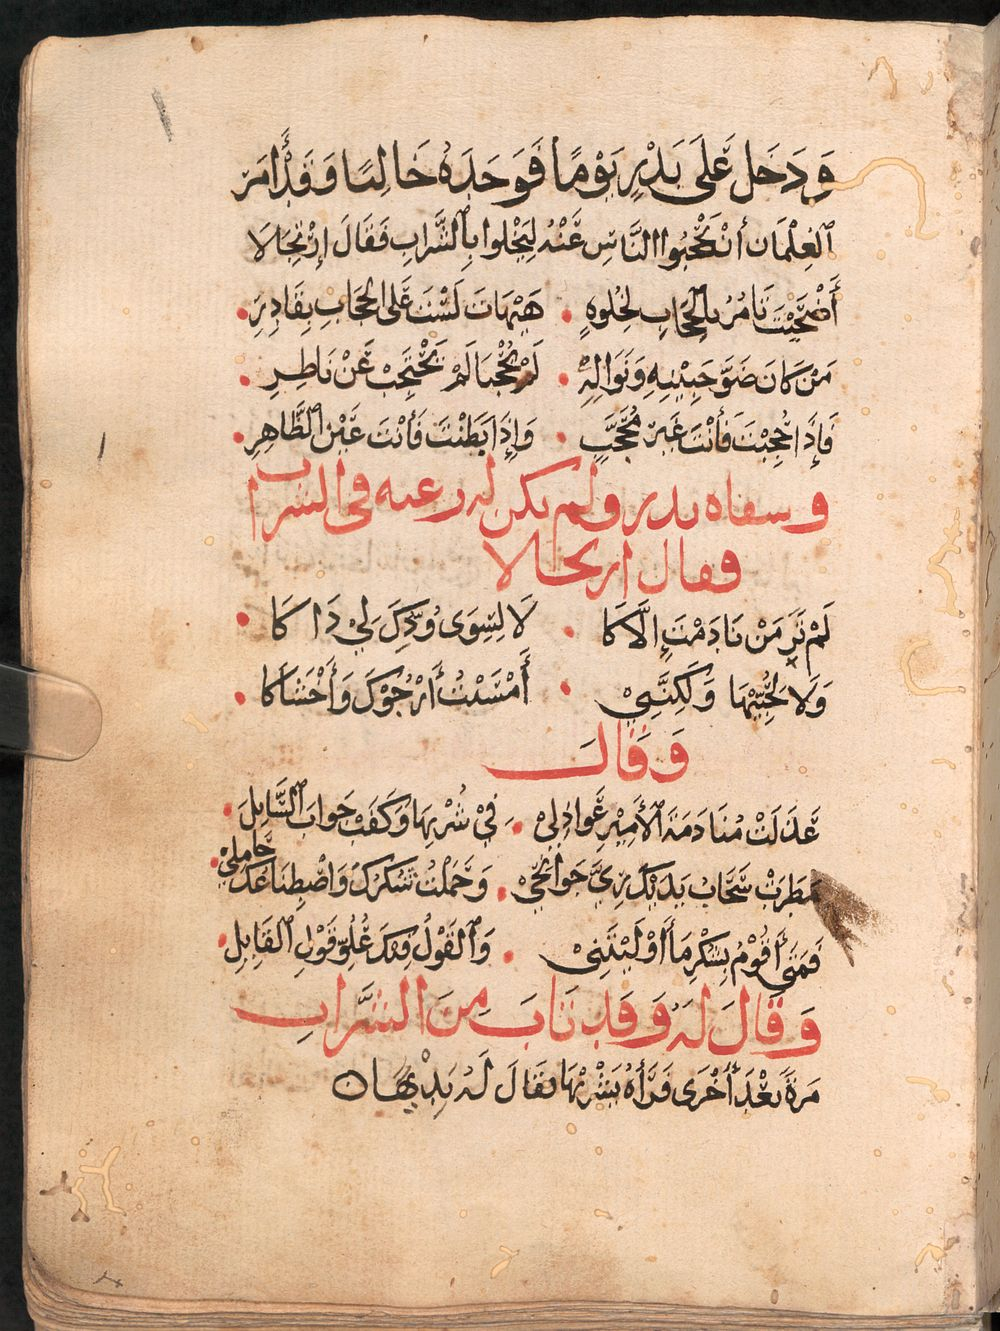 وَدَخَل عَلَى بَدْرٍ يَوْمًا فَوَجَدَهُ خَالِيًا وَقَدْ أَمَرَ
الغِلْمَان أنْ يَحْجُبُوا النَّاسَ عَنْهُ لِيَخْلوا بِالشَّرابِ فَقَالَ اِرْتِجَالا
أَصْبَحْتَ تَامُرُ بِالحِجَابِ لِخُلوَةٍ • هَيْهَاتَ لَسْتَ عَلى الحِجَابِ بِقَادِرِ •
مَنْ كَانَ ضَوَّ جَبِيْنِهِ وَنَوَالِهِ • لَمْ يُحْجَبا لَمْ يَحْتَجِبْ عَنْ نَاظِرِ •
فَإِذَا حُجِبْتَ فَأَنْتَ غَيرَ مُحَجَّبٍ • وَإِذَا بَطَنْتَ فَأَنْتَ عَيْنُ الظَّاهِرِ •
وسقاه بدر ولم يكن له رغبه فى الشراب
فقال ارتجالا
لَمْ تَرَ مَنْ نَادَمْتَ إِلَّاكَا • لَا لِسِوَى وُدِّكَ لِي ذَاكَا •
وَلَا لِحُبِّيْهَا وَلَكِنَّنِيْ • أَمْسَيْتُ أَرْجُوْكَ وَأَخْشَاكَا •
وَقَالَ
عَذَلَتْ مُنَادَمَةَ الأَمِيْرِ عَوَاذِلِيْ • فِيْ شُرْبِهَا وَكَفَتْ جَوابَ السَّايلَ •
مَطَرَتْ سَحَابُ يَدَيْكَ رِيَّ جَوَانِحِيْ • وَحَمَلْتُ شُكْرَكَ وَاصْطِنَاعُكَ حَامِلِيْ •
فَمَتَى أَقُوْمُ بِشُكْرِ مَا أَوْلَيْتَنِيْ • وَالقَوْلُ فِيْكَ عُلُوّ قَوْلِ القَايِلِ •
وَقَالَ لَهُ وَقَد تَابَ مِنَ الشَّرابِ
مَرةً بَعْدَ أُخْرَى فَرَأَهُ يَشْرَبُهَا فقَالَ لَهُ بَدْيْهًا